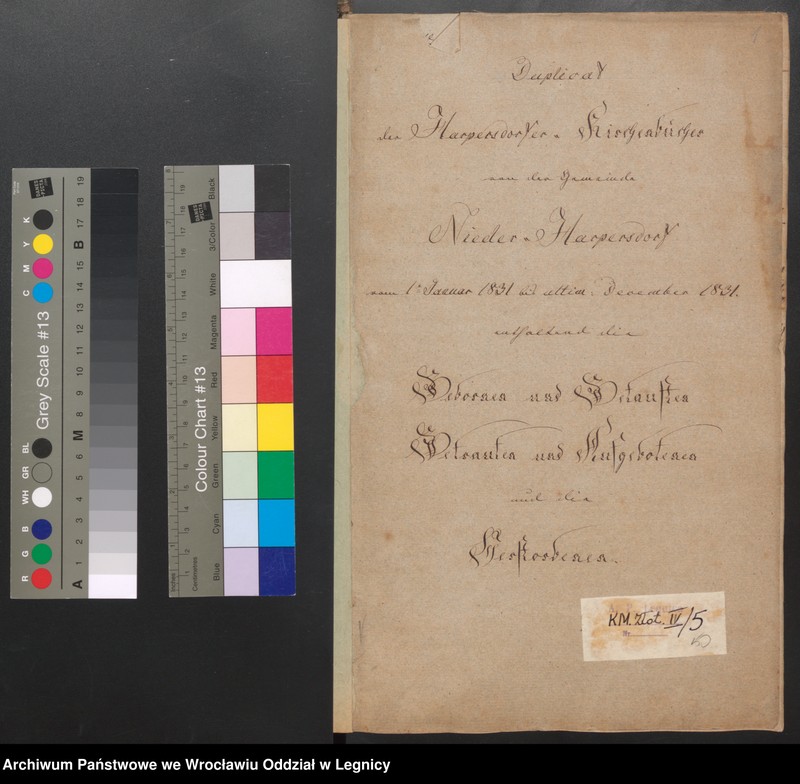 Duplicat
der Harpersdorfer Kirchenbücher
von der Gemeinde
Nieder-Harpersdorf
vom 1. Januar 1831 bis ultim. December 1831.
enthaltend die
Gebornen und Getauften
Getrauten und Aufgebotenen
und die
Verstorbenen.
KM. Złot. IV/5
Nr.
50
Grey Scale #13
C M Y K
R G B WH GR BL
A 1 2 3 4 5 6 M 8 9 10 11 12 13 14 15 B 17 18 19
DANES PICTA
Colour Chart #13
Blue Cyan Green Yellow Red Magenta White 3/Color Black
Inches
Centimetres
DANES PICTA
Archiwum Państwowe we Wrocławiu Oddział w Legnicy